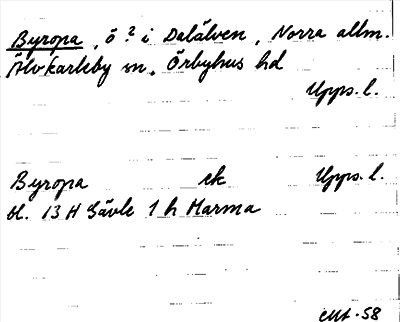 Byropa, ö? i Dalälven, Norra allm.
Älvkarleby sn, Örbyhus hd
Upps. l.
Byropa ek Upps. l.
bl. 13 H Gävle 1 h Marma
-58